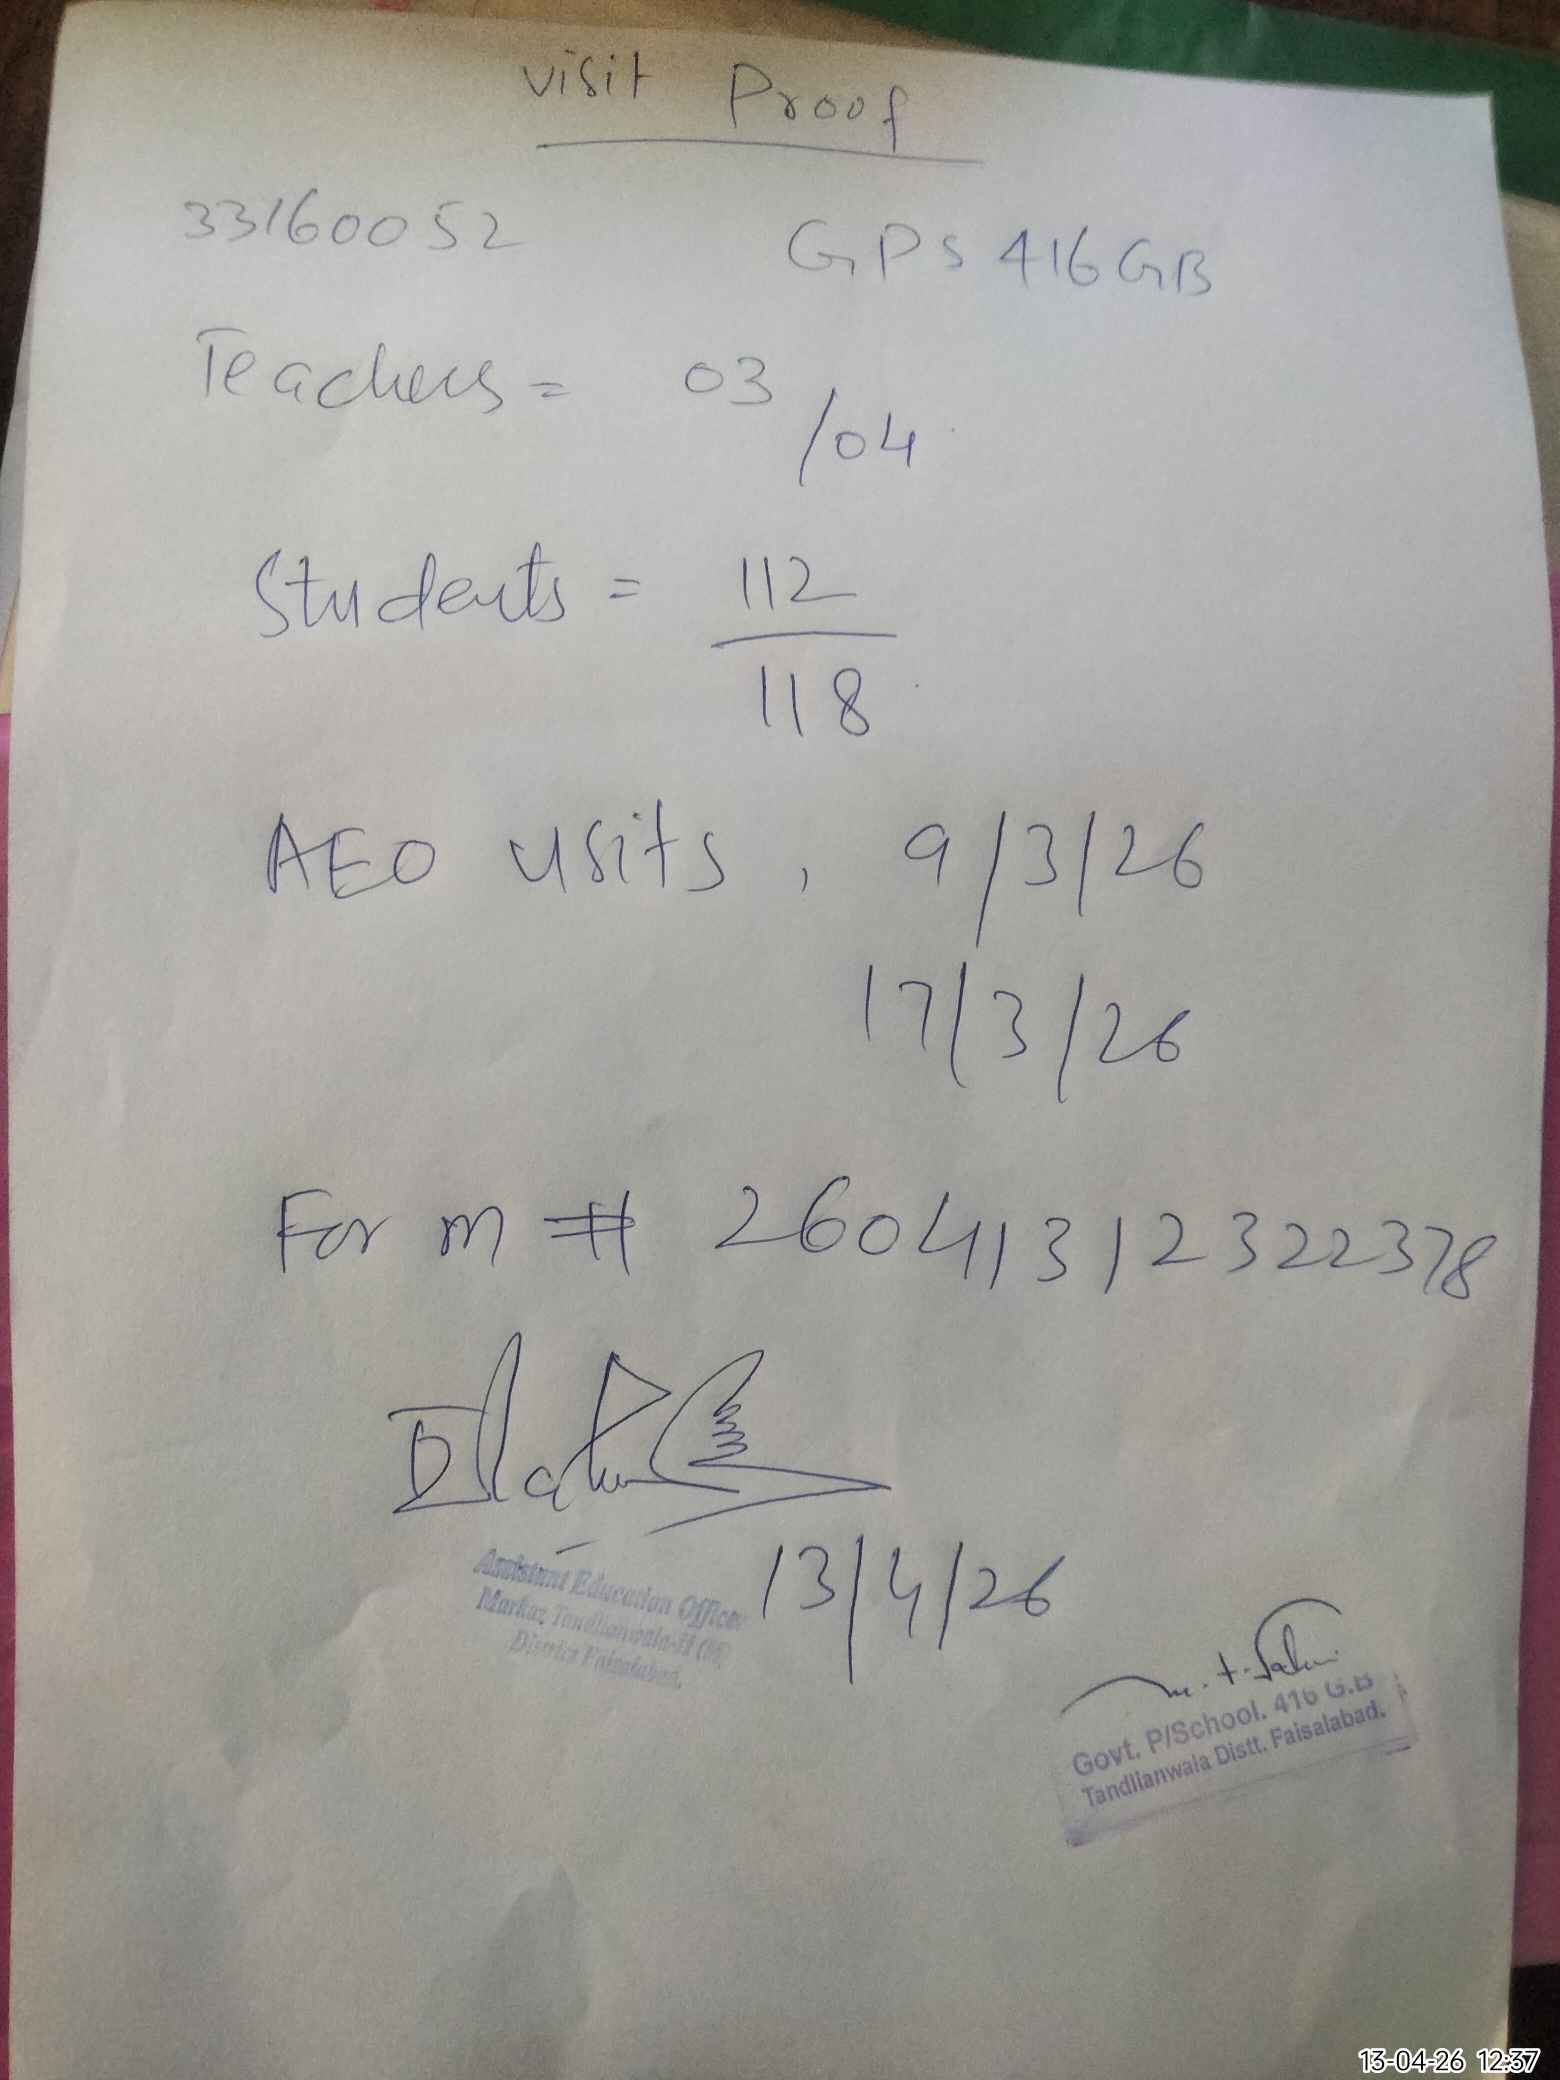 visit Proof
33160052 GPS 416 GB
Teachers = 03/04
Students = 112
118
AEO visits, 9/3/26
17/3/26
Form # 26041312322378
13/4/26
Assistant Education Officer
Markaz Tandlianwala-II (M)
District Faisalabad.
Govt. P/School. 416 G.B
Tandlianwala Distt. Faisalabad.
13-04-26 12:37